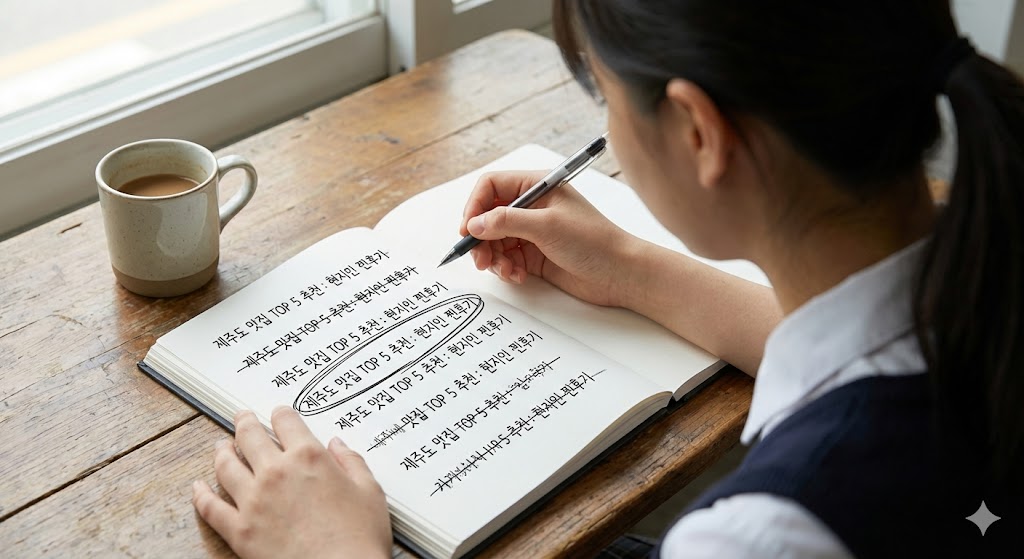 제주도 맛집 TOP 5 추천 : 현지인 찐후기
제주도 맛집 TOP 5 추천 : 현지인 찐후기
제주도 맛집 TOP 5 추천 : 현지인 찐후기
제주도 맛집 TOP 5 추천 : 현지인 찐후기
제주도 맛집 TOP 5 추천 : 현지인 찐후기
맛집 TOP 5 추천 : 현지인 찐후기
제주도 맛집 TOP 5 추천 :
5 추천 : 현지인 찐후기